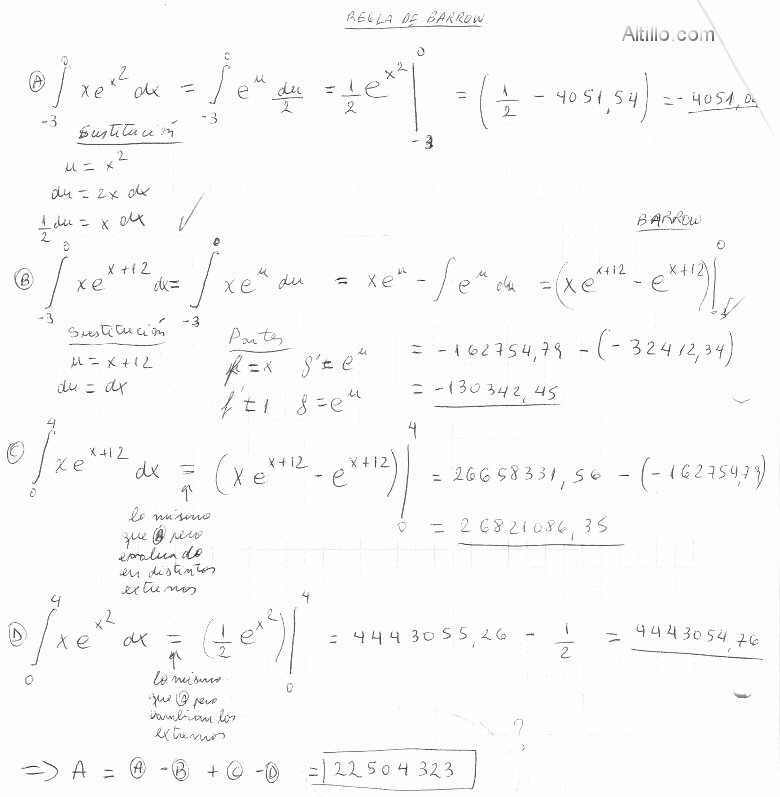 REGLA DE BARROW
Altillo.com
Ⓐ ∫₋₃⁰ x e^{x²} dx = ∫₋₃⁰ e^u du/2 = 1/2 e^{x²} |₋₃⁰ = (1/2 - 4051,54) = - 4051,04
Sustitución
u = x²
du = 2x dx
1/2 du = x dx
BARROW
Ⓑ ∫₋₃⁰ x e^{x+12} dx = ∫₋₃⁰ x e^u du = x e^u - ∫ e^u du = (x e^{x+12} - e^{x+12}) |₋₃⁰
Sustitución
u = x+12
du = dx
Partes
f = x g' = e^u
f' = 1 g = e^u
= -162754,79 - (-32412,34)
= -130342,45
Ⓒ ∫₀⁴ x e^{x+12} dx = (x e^{x+12} - e^{x+12}) |₀⁴ = 26658331,56 - (-162754,79)
= 26821086,35
lo mismo
que Ⓑ pero
evaluado
en distintos
extremos
Ⓓ ∫₀⁴ x e^{x²} dx = (1/2 e^{x²}) |₀⁴ = 4443055,26 - 1/2 = 4443054,76
lo mismo
que Ⓐ pero
cambian los
extremos
?
⇒ A = Ⓐ - Ⓑ + Ⓒ - Ⓓ = 22504323